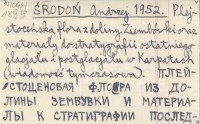 ŚRODOŃ Andrzej 1952. Plej-
stoceńska flora z doliny Ziembówki oraz
materiały do stratygrafii ostatniego
glacjału i postglacjału w Karpatach
(wiadomość tymczasowa). ПЛЕЙ-
СТОЦЕНОВАЯ ФЛОРА ИЗ ДО-
ЛИНЫ ЗЕМБУВКИ И МАТЕРИА-
ЛЫ К СТРАТИГРАФИИ ПОСЛЕД-